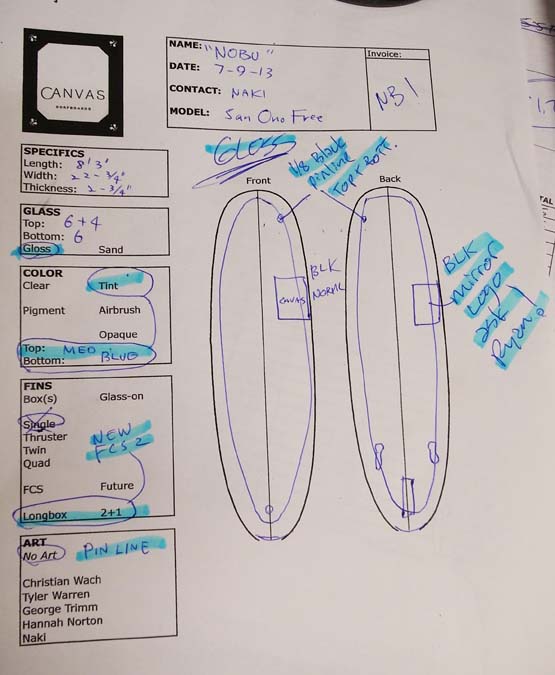 CANVAS
SURFBOARDS
NAME: "NOBU"
DATE: 7-9-13
CONTACT: NAKI
MODEL: San Ono Free
Invoice:
NB1
GLOSS
1/8 Black
pinline
Top + Bott.
SPECIFICS
Length: 8'3"
Width: 22-3/4"
Thickness: 2-3/4"
GLASS
Top: 6+4
Bottom: 6
Gloss Sand
COLOR
Clear Tint
Pigment Airbrush
Opaque
Top: MED
Bottom: BLUE
FINS
Box(s) Glass-on
Single
Thruster
Twin
Quad
NEW
FCS 2
FCS Future
Longbox 2+1
ART
No Art PIN LINE
Christian Wach
Tyler Warren
George Trimm
Hannah Norton
Naki
Front
CANVAS
BLK
NORML
Back
BLK
mirror
LOGO
ask
Ryan
TAL